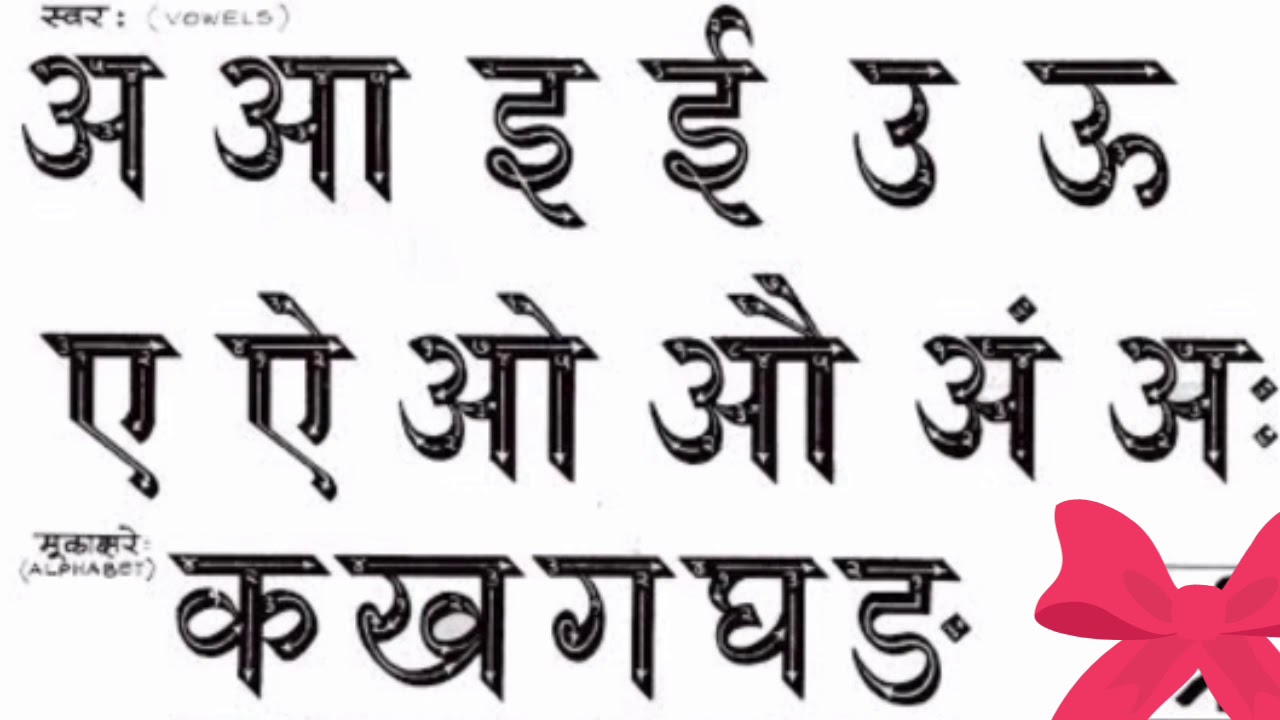 स्वर : (VOWELS)
अ आ इ ई उ ऊ
ए ऐ ओ औ अं अः
मूळाक्षरे:
(ALPHABET)
क ख ग घ ङ